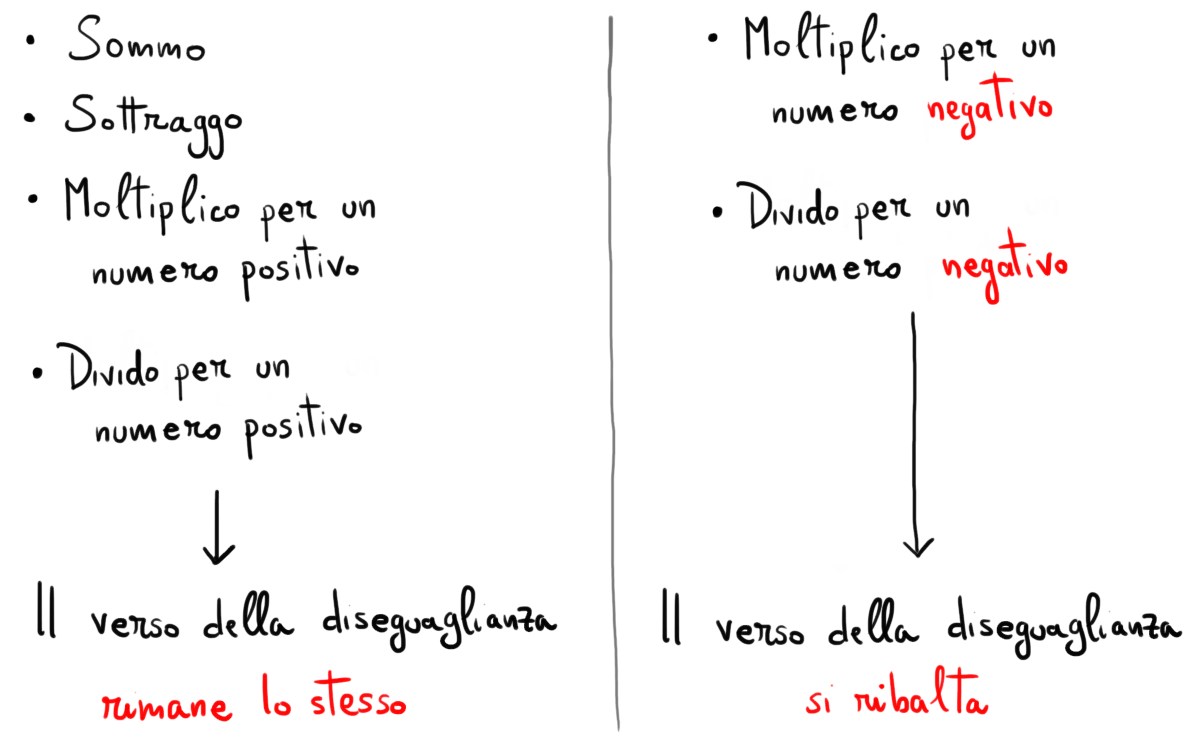 • Sommo
• Sottraggo
• Moltiplico per un
numero positivo
• Divido per un
numero positivo
Il verso della diseguaglianza
rimane lo stesso
• Moltiplico per un
numero negativo
• Divido per un
numero negativo
Il verso della diseguaglianza
si ribalta